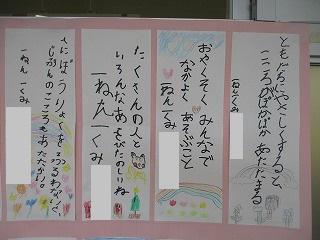 ともだちにやさしくすると、
こころがぽかぽか あたたまる
一ねん一くみ
おやくそく みんなで
なかよく あそぶこと
一ねん一くみ
たくさんの人と
いろんなあそびたのしいね
一ねん一くみ
人にぼうりょくをふるわないで、
じぶんのこころもあたたかい。
一ねん一くみ